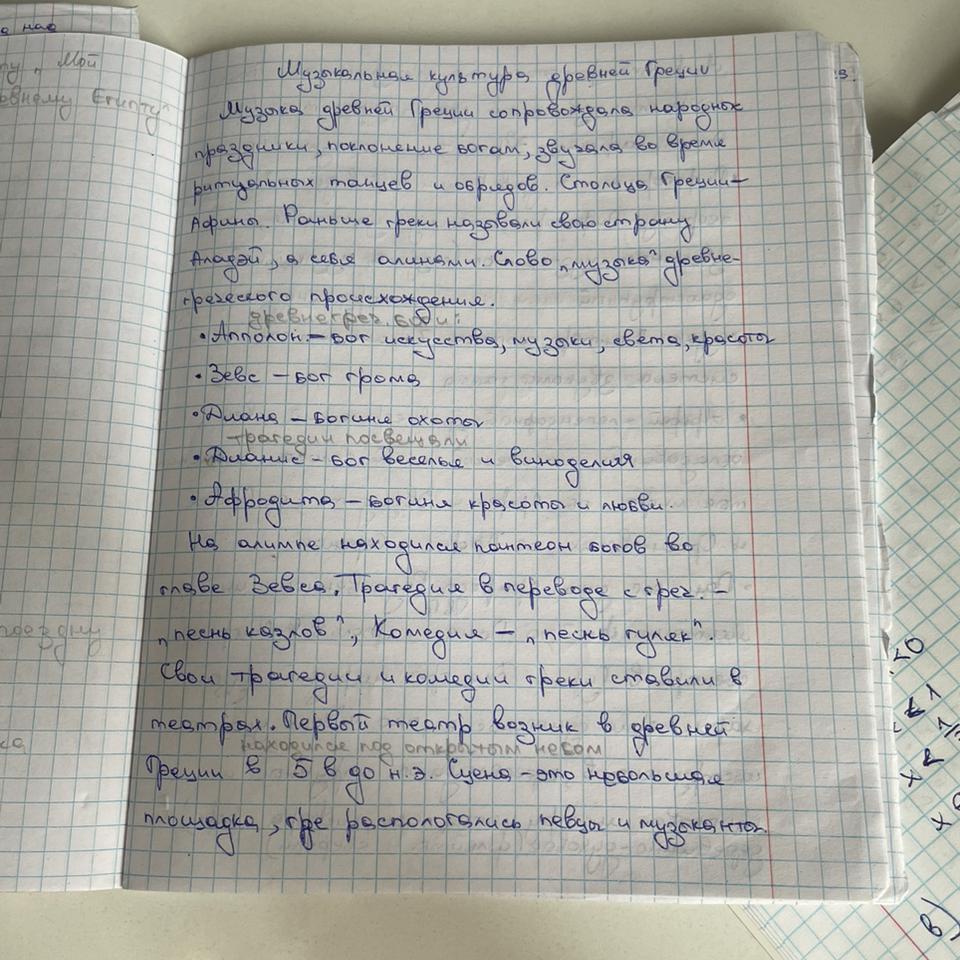 Музыкальная культура древней Греции
Музыка древней Греции сопровождала народных
праздники, поклонение богам, звучала во время
ритуальных танцев и обрядов. Столица Греции –
Афины. Раньше греки называли свою страну
Аладэй, а себя алинами. Слово „музыка" древне-
греческого происхождения.
древнегреч. боги:
• Апполон – бог искусства, музыки, света, красоты
• Зевс – бог грома
• Диана – богиня охоты
трагедии посвещали
• Дианис – бог веселья и виноделия
• Афродита – богиня красоты и любви.
На алимпе находился пантеон богов во
главе Зевса. Трагедия в переводе с греч. –
„песнь казлов", Комедия – „песнь гуляк".
Свои трагедии и комедии греки ставили в
театрах. Первый театр возник в древней
находился под открытым небом
Греции в 5 в до н.э. Сцена – это небольшая
площадка, где распологались певцы и музыканты.
на нас
Мой
Египту"